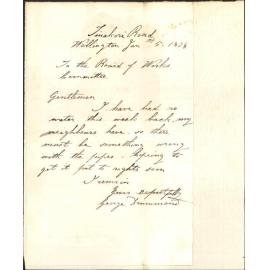 Tinakori Road
Wellington Jan 5th 1878
To the Board of Works
Committee
Gentlemen
I have had no
water this week back, my
neighbours have, so there
must be something wrong
with the pipes. Hoping to
get it put to rights soon
I remain
Yours Respectfully
George Drummond